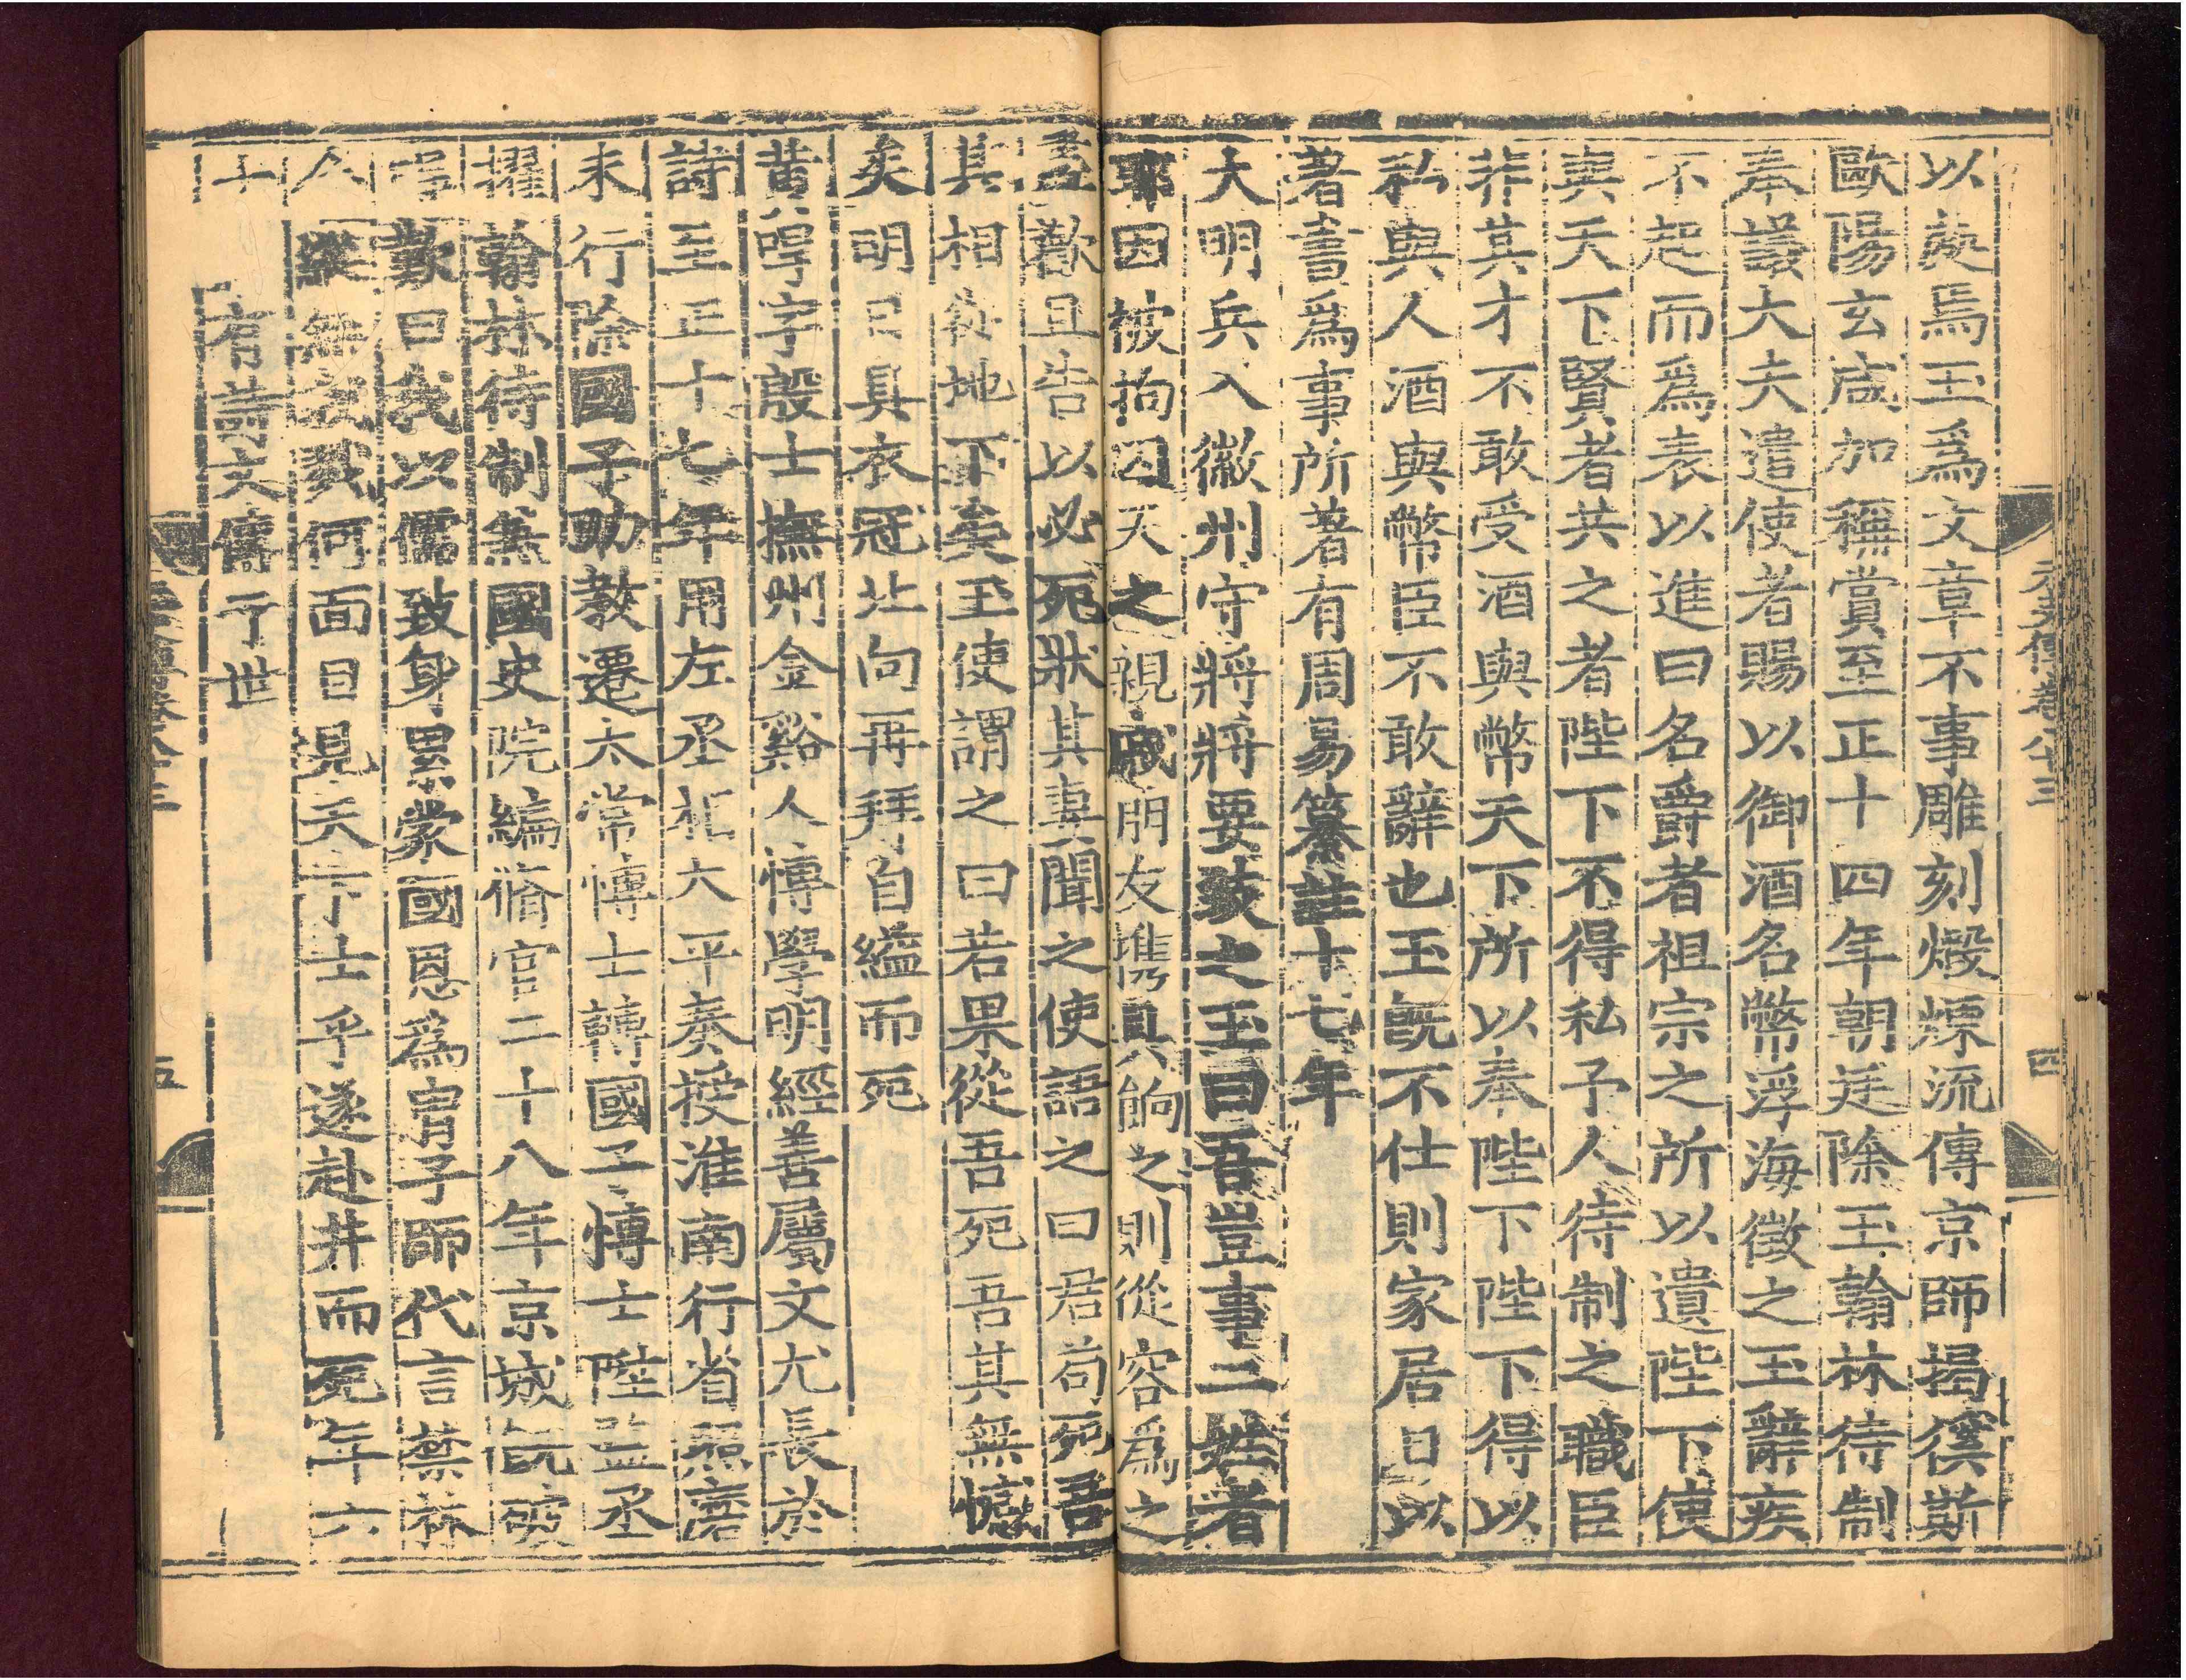 以疑焉玉爲文章不事雕刻煅煉流傳京師揭徯斯
歐陽玄咸加稱賞至正十四年朝廷除玉翰林待制
奉議大夫遣使者賜以御酒名幣浮海徵之玉辭疾
不起而爲表以進曰名爵者祖宗之所以遺陛下使
與天下賢者共之者陛下不得私予人待制之職臣
非其才不敢受酒與幣天下所以奉陛下陛下得以
私與人酒與幣臣不敢辭也玉旣不仕則家居日以
著書爲事所著有周易纂註十七年
大明兵入徽州守將將要致之玉曰吾豈事二姓者
耶因被拘囚久之親戚朋友携具餉之則從容爲之
盡歡且告以必死狀其妻聞之使語之曰君苟死吾
其相從地下矣玉使謂之曰若果從吾死吾其無憾
矣明日具衣冠北向再拜自縊而死
黃𠵸字殷士撫州金谿人博學明經善屬文尤長於
詩至正十七年用左丞相太平奏授淮南行省照磨
未行除國子助敎遷太常博士轉國子博士陞監丞
擢翰林待制兼國史院編脩官二十八年京城旣破
𠵸歎曰我以儒致身累蒙國恩爲胄子師代言禁林
今縱無我戮何面目見天下士乎遂赴井而死年六
十一有詩文傳于世
元史傳卷八十三
四
五